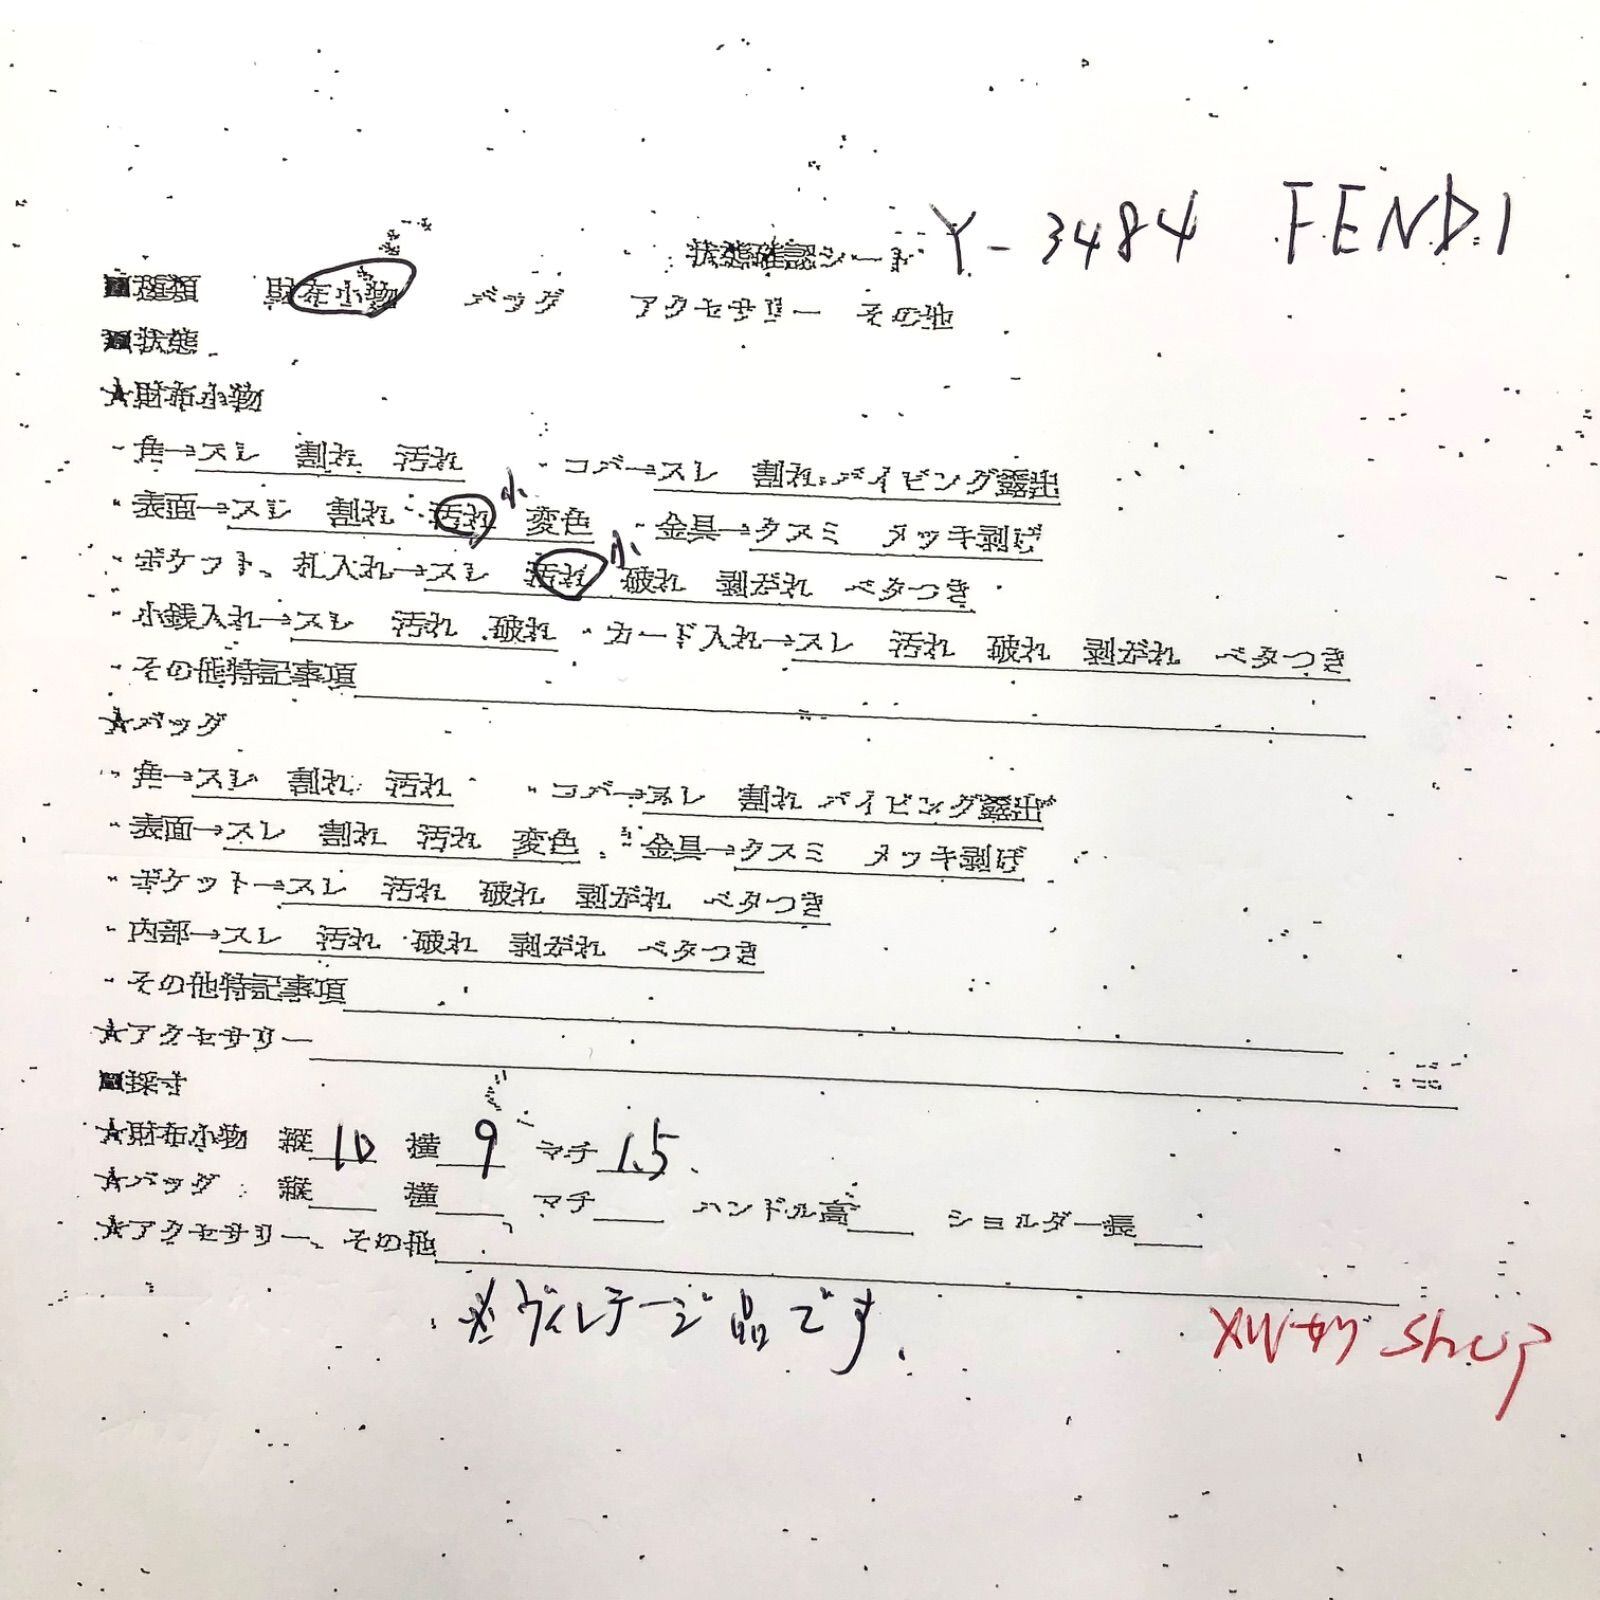 状態確認シート Y-3484 FENDI
■種類 財布小物 バッグ アクセサリー その他
■状態
★財布小物
・角→スレ 割れ 汚れ ・コバ→スレ 割れ パイピング露出
・表面→スレ 割れ 汚れ 小 変色 ・金具→クスミ メッキ剥げ
・ポケット、札入れ→スレ 汚れ 小 破れ 剥がれ ベタつき
・小銭入れ→スレ 汚れ 破れ ・カード入れ→スレ 汚れ 破れ 剥がれ ベタつき
・その他特記事項
★バッグ
・角→スレ 割れ 汚れ ・コバ→スレ 割れ パイピング露出
・表面→スレ 割れ 汚れ 変色 ・金具→クスミ メッキ剥げ
・ポケット→スレ 汚れ 破れ 剥がれ ベタつき
・内部→スレ 汚れ 破れ 剥がれ ベタつき
・その他特記事項
★アクセサリー
■採寸
★財布小物 縦 10 横 9 マチ 1.5
★バッグ 縦 横 マチ ハンドル高 ショルダー長
★アクセサリー、その他
※ヴィンテージ品です
shop